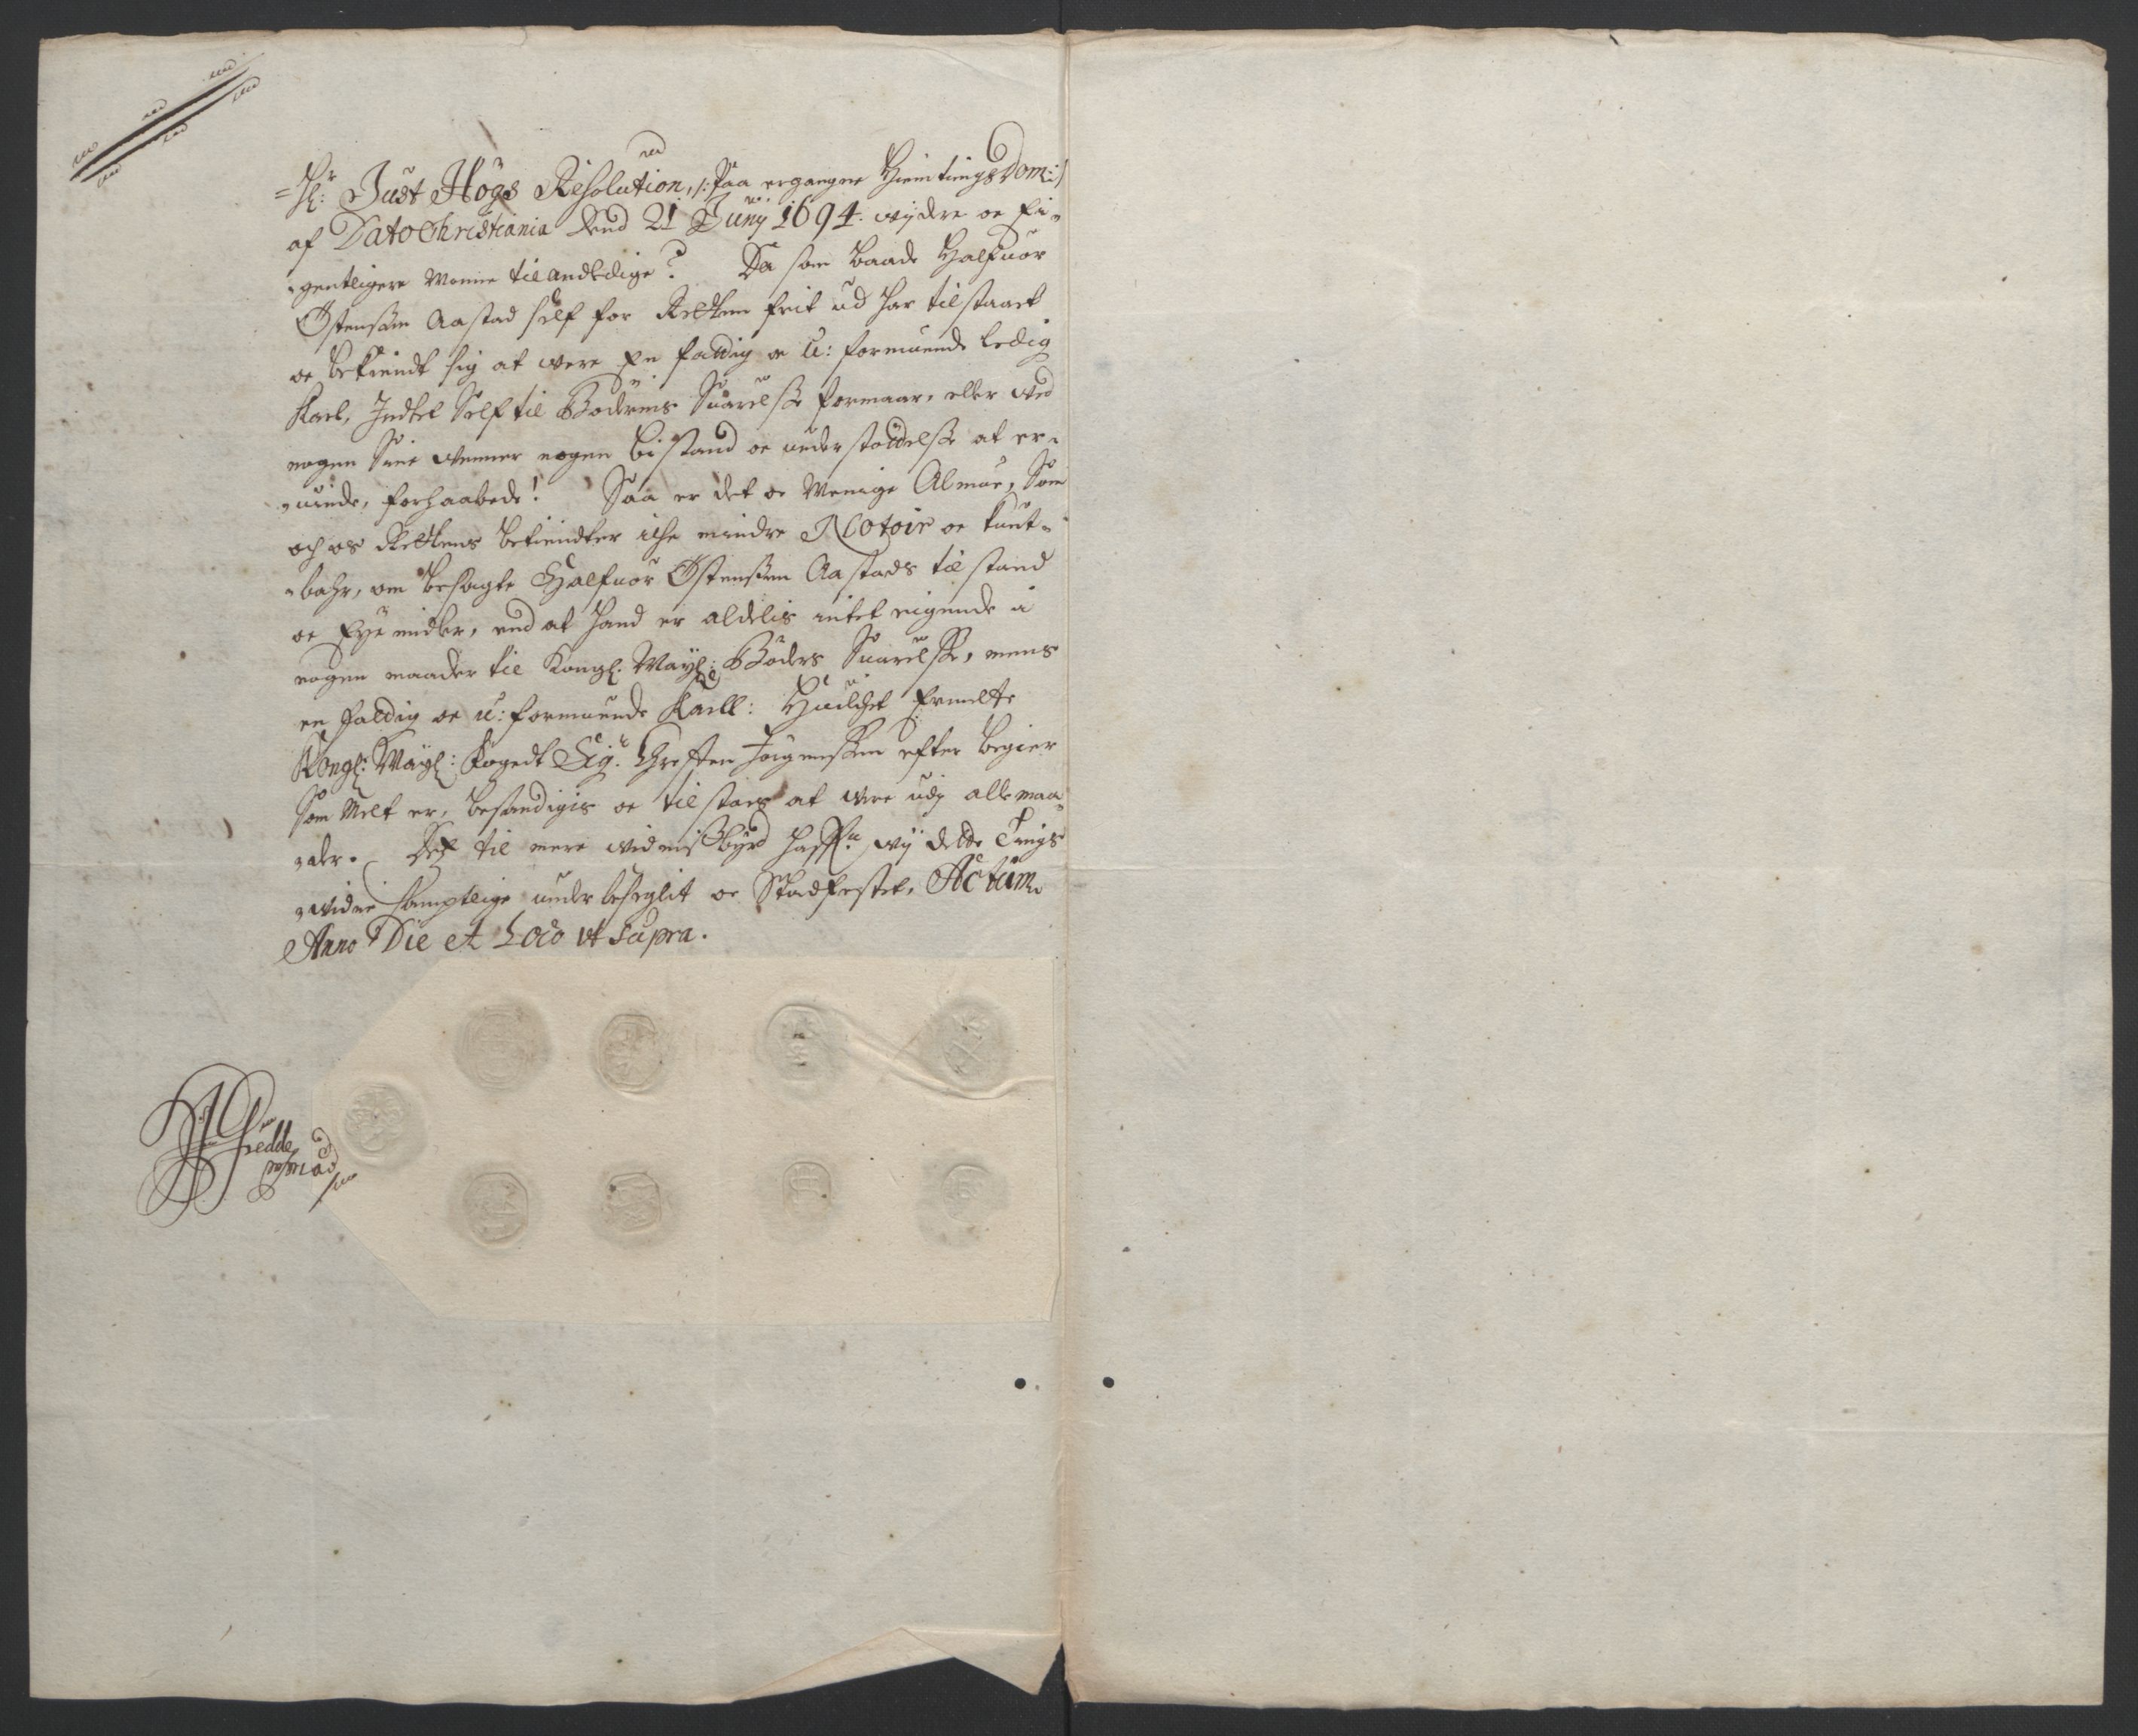 =H: Just Högs Resolution, /: Paa ergangne Hiemtings Dom :/
af Dato Christiania dend 21 Junij 1694. wijdre oc Ei-
-gentligere Monne tilandledige? Da som baade Halfuor
Østenssøn Aastad self for Retten frit ud har tilstaaet
oc bekiendt sig at were En fattig oc u: formuende ledig
Karl, Indtet Self til Bøderns Suarelsse formaar, eller ved
nogen Sine venner nogen bistand oc understøttelsse at er-
-uinde, forhaabede! Saa er det oc Menige Almue, Som
och os Rettens bekiendter ilche mindre Notoir oc kunt-
-bahr, om besagte Halfuor Østenssøn Aastads tilstand
oc Eye midler, end at hand er aldelis intet eigende i
nogen maader til Kongl: Mayt: Bøders Suarelsse, mens
en fattig oc u: formuende Karll: Huilchet Ermelte
Kongl: Mayt: Fogedt Sig: Gresten Jørgenssøn efter begier
Som Melt er, bestendigis oc tilstaes at were udj alle maa-
-der. Dess til mere vidnissbyrd haffr wij dette Tings-
-widne samptlige under beseglit oc Stadfestet, Actum
Anno Die et Loco ut supra.